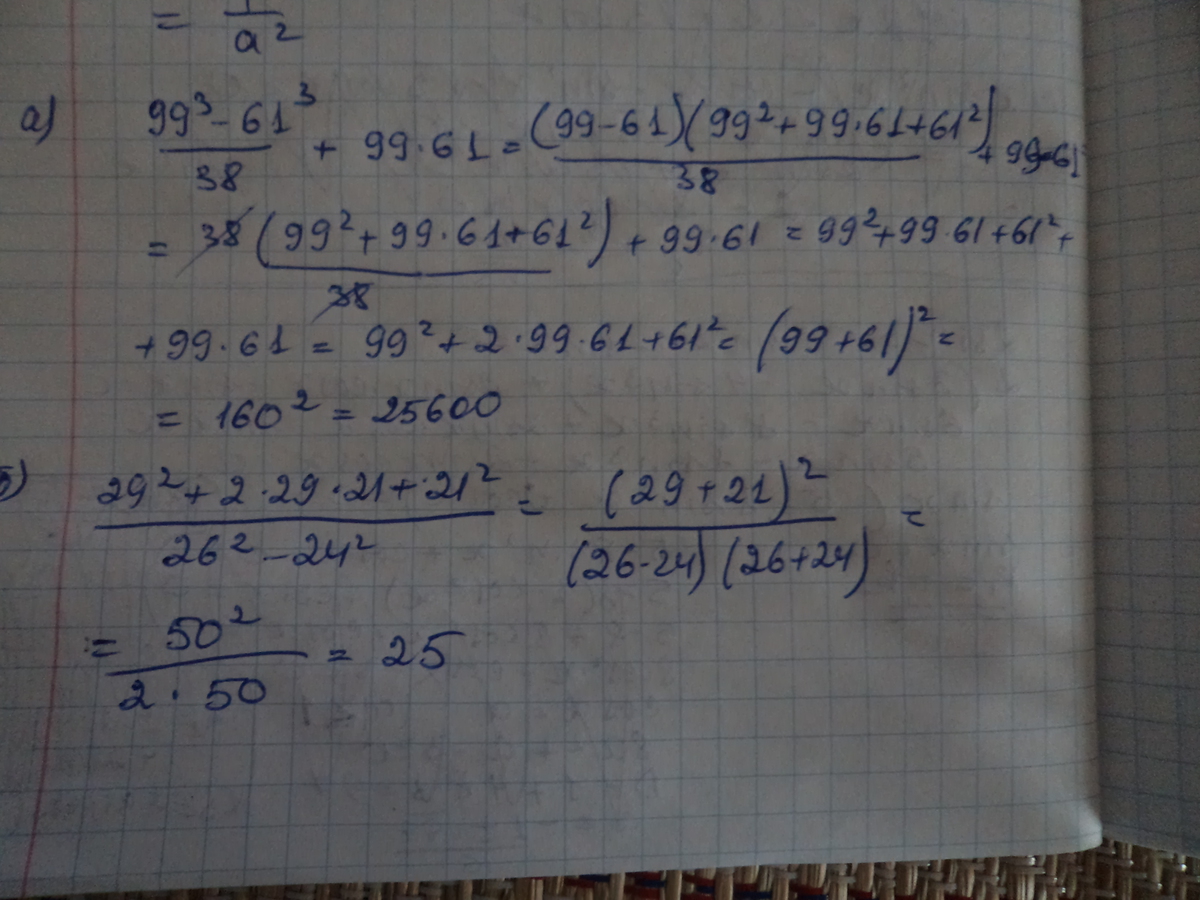 = 1/a²
а) (99³ - 61³)/38 + 99·61 = (99-61)(99² + 99·61 + 61²)/38 + 99·61
= 38(99² + 99·61 + 61²)/38 + 99·61 = 99² + 99·61 + 61² +
+ 99·61 = 99² + 2·99·61 + 61² = (99 + 61)² =
= 160² = 25600
б) (29² + 2·29·21 + 21²)/(26² - 24²) = (29 + 21)²/((26-24)(26+24)) =
= 50²/(2·50) = 25